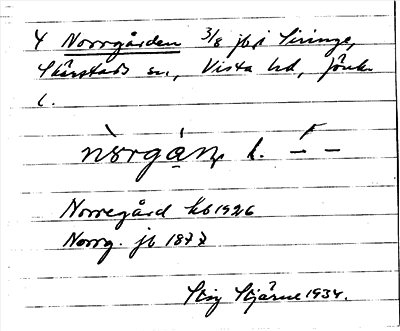 4 Norrgården 3/8 jb i Siringe,
Skärstads sn, Vista hd, Jönk.
l.
nòrgán, l.
Norregård kb 1926
Norrg. jb 1877
Stig Stjärne 1934.